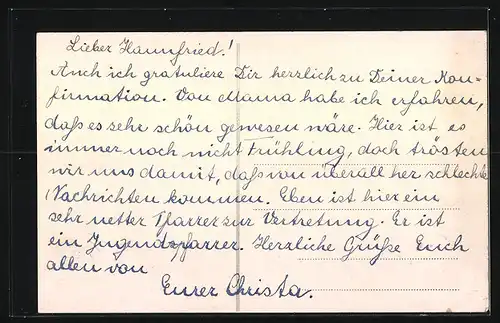 Lieber Hannfried!
Auch ich gratuliere Dir herzlich zu Deiner Kon-
firmation. Von Mama habe ich erfahren,
daß es sehr schön gewesen wäre. Hier ist es
immer noch nicht Frühling, doch trösten
wir uns damit, daß von überall her schlechte
Nachrichten kommen. Eben ist hier ein
sehr netter Pfarrer zur Vertretung. Er ist
ein Jugendpfarrer. Herzliche Grüße Euch
allen von
Eurer Christa.